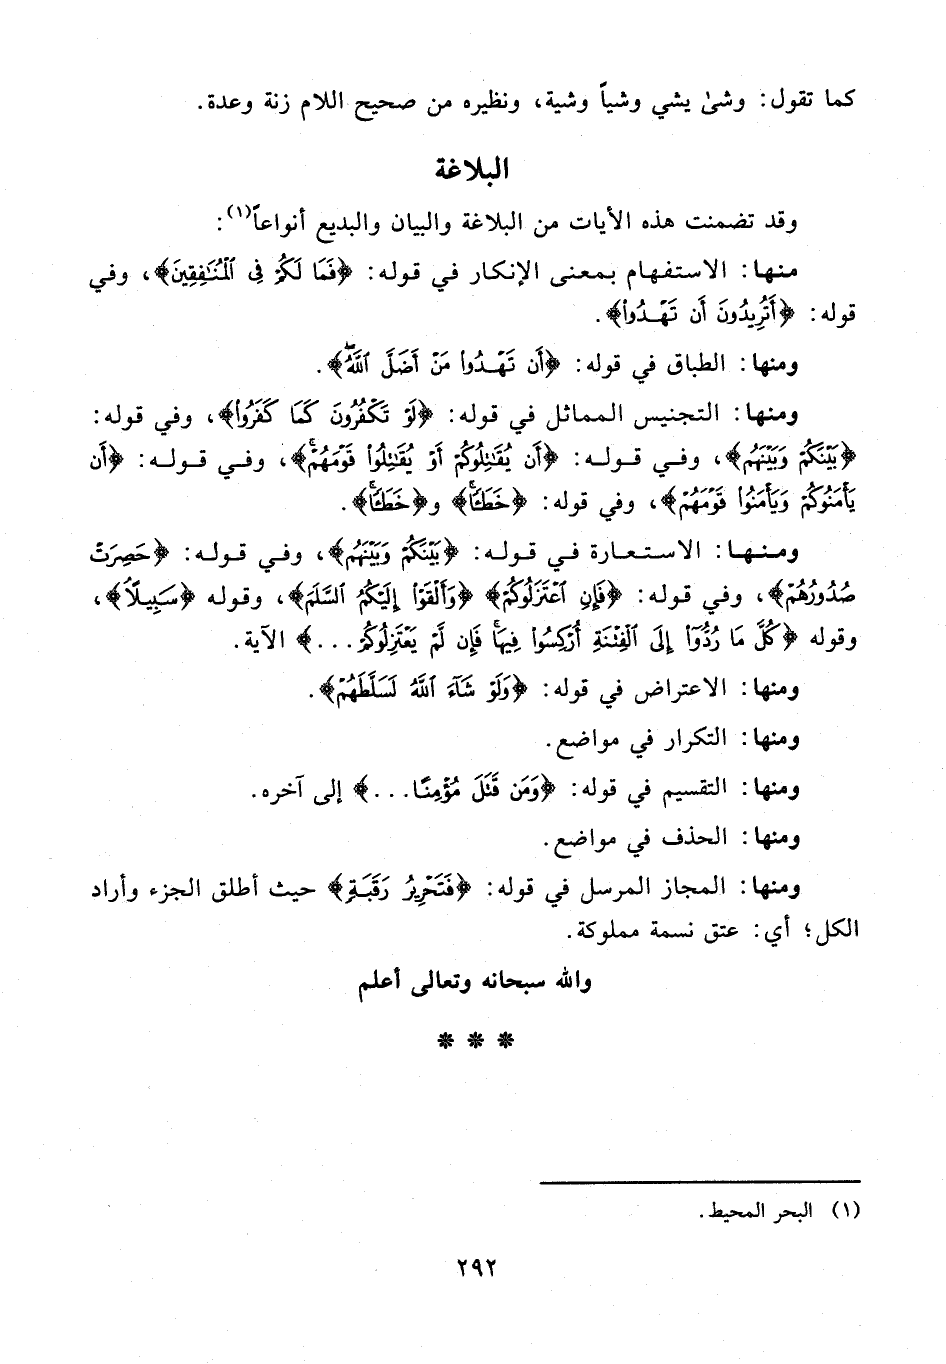 كما تقول: وشىٰ يشي وشياً وشية، ونظيره من صحيح اللام زنة وعدة.
البلاغة
وقد تضمنت هذه الأيات من البلاغة والبيان والبديع أنواعاً(١):
منها: الاستفهام بمعنى الإنكار في قوله: ﴿فَمَا لَكُمْ فِى ٱلْمُنَٰفِقِينَ﴾، وفي
قوله: ﴿أَتُرِيدُونَ أَن تَهْدُوا۟﴾.
ومنها: الطباق في قوله: ﴿أَن تَهْدُوا۟ مَنْ أَضَلَّ ٱللَّهُۖ﴾.
ومنها: التجنيس المماثل في قوله: ﴿لَوْ تَكْفُرُونَ كَمَا كَفَرُوا۟﴾، وفي قوله:
﴿بَيْنَكُمْ وَبَيْنَهُم﴾، وفي قوله: ﴿أَن يُقَٰتِلُوكُمْ أَوْ يُقَٰتِلُوا۟ قَوْمَهُمْۚ﴾، وفي قوله: ﴿أَن
يَأْمَنُوكُمْ وَيَأْمَنُوا۟ قَوْمَهُمْ﴾، وفي قوله: ﴿خَطَـًٔاۚ﴾ و﴿خَطَـًٔاۚ﴾.
ومنها: الاستعارة في قوله: ﴿بَيْنَكُمْ وَبَيْنَهُم﴾، وفي قوله: ﴿حَصِرَتْ
صُدُورُهُمْ﴾، وفي قوله: ﴿فَإِنِ ٱعْتَزَلُوكُمْ﴾ ﴿وَأَلْقَوْا۟ إِلَيْكُمُ ٱلسَّلَمَ﴾، وقوله ﴿سَبِيلًا﴾،
وقوله ﴿كُلَّ مَا رُدُّوٓا۟ إِلَى ٱلْفِتْنَةِ أُرْكِسُوا۟ فِيهَاۚ فَإِن لَّمْ يَعْتَزِلُوكُمْ...﴾ الآية.
ومنها: الاعتراض في قوله: ﴿وَلَوْ شَآءَ ٱللَّهُ لَسَلَّطَهُمْ﴾.
ومنها: التكرار في مواضع.
ومنها: التقسيم في قوله: ﴿وَمَن قَتَلَ مُؤْمِنًا...﴾ إلى آخره.
ومنها: الحذف في مواضع.
ومنها: المجاز المرسل في قوله: ﴿فَتَحْرِيرُ رَقَبَةٍ﴾ حيث أطلق الجزء وأراد
الكل؛ أي: عتق نسمة مملوكة.
والله سبحانه وتعالى أعلم
* * *
(١) البحر المحيط.
٢٩٢